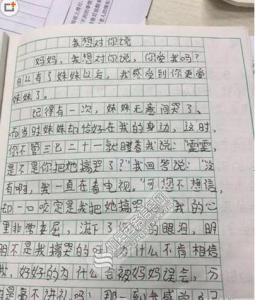 我想对你说
妈妈，我想对你说，你爱我吗？
自从有了妹妹以后，我感受到你更爱
妹妹了。
记得有一次，妹妹无意间哭了，
而当时妹妹恰好在我的身边，这时，
你不管三七二十一就瞪着我说："
是不是你把她搞哭了？"我回答说："没
有啊，我一直在看电视。"可您不想信，
一口咬定是我把她搞哭 我的心
里非常委屈，流下了 的眼泪，明
明不是我搞哭的 什么不肯相信
我，好好的为什么 被妈妈误会，
是毫不讲礼吗？那一 我感